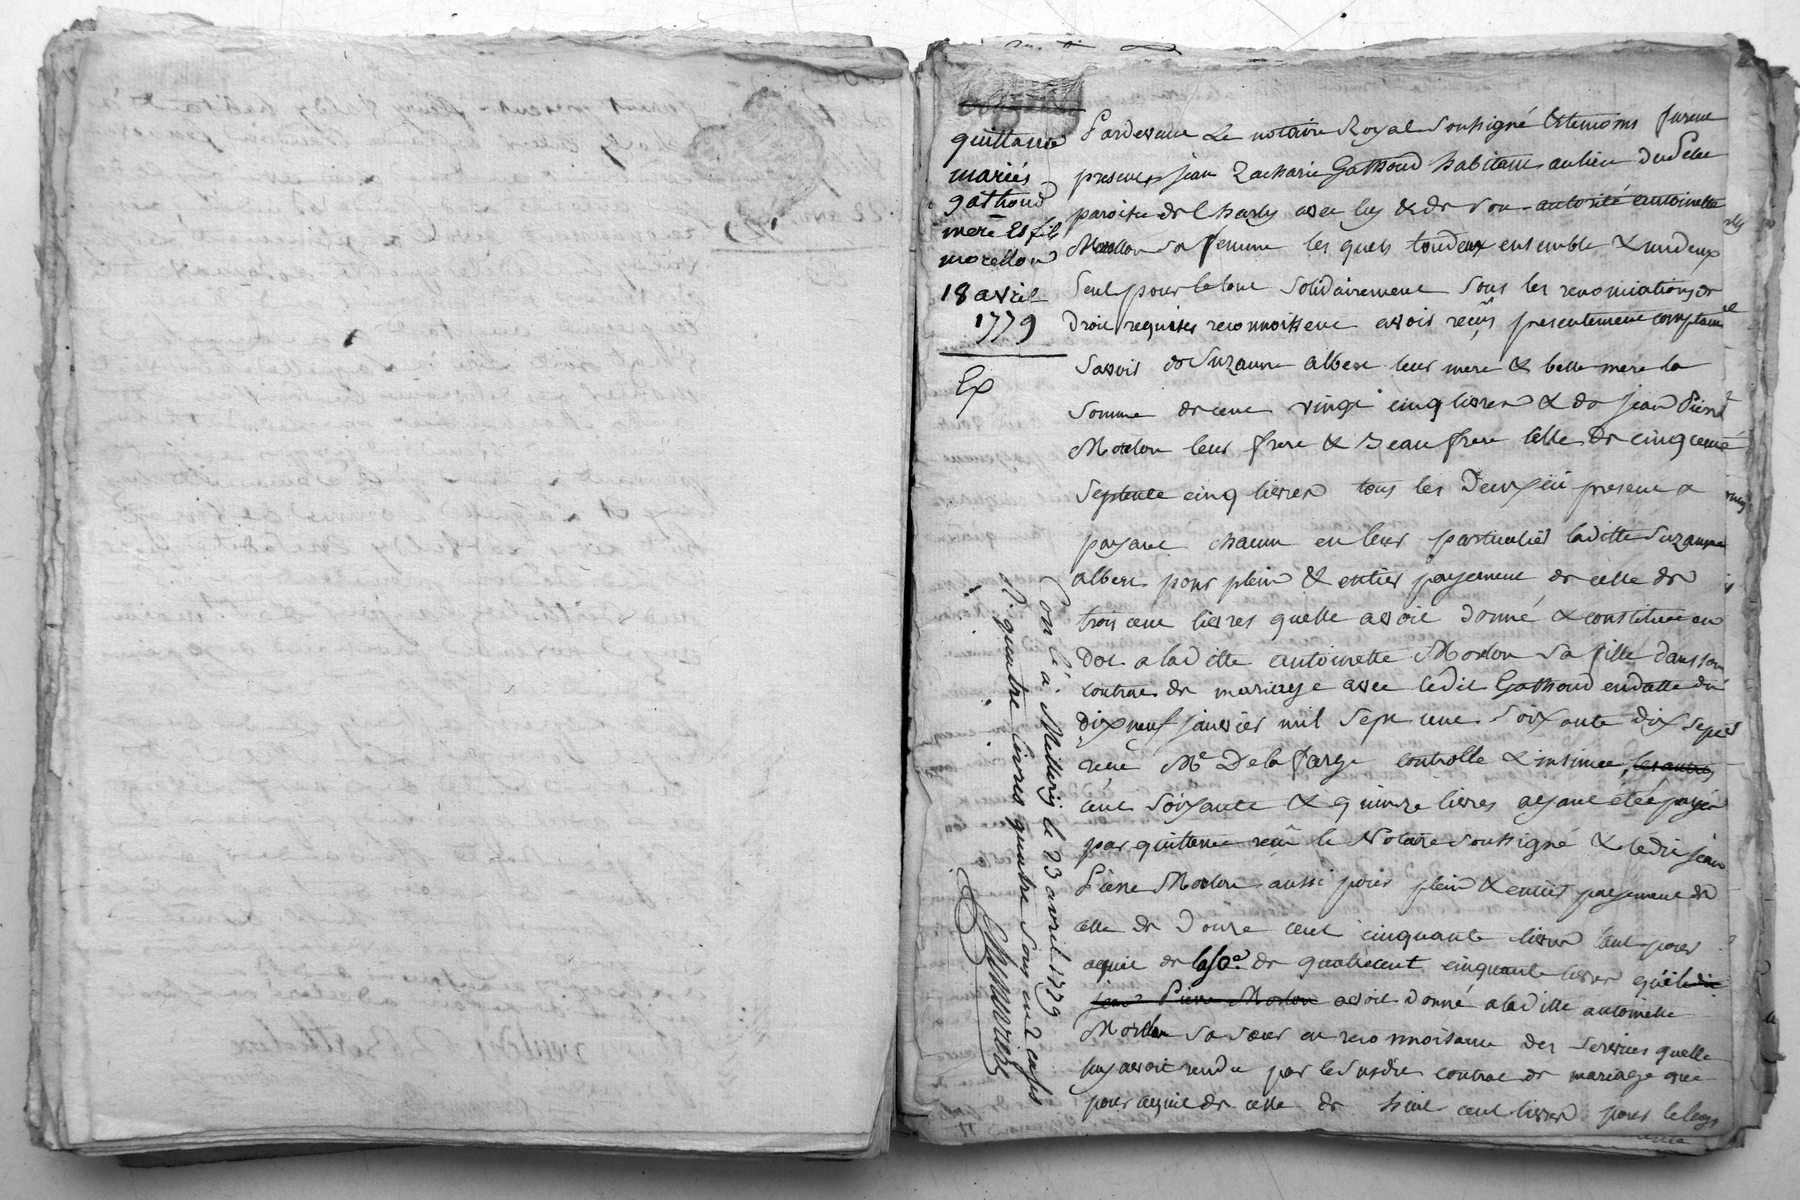 quittance
mariés
gathoud
mere et fils
morellon
18 avril
1779
Ex
Pardevant Le notaire Royal soussigné & temoins furent
presents jean Zacharie Gathoud habitant au lieu du
paroisse de Charly avec luy & de son autorité antoinette
Morellon sa femme les quels toudeux ensemble & un deux
seul pour le tout solidairement sous les renonciations de
droit requises reconnoissent avoir reçus presentement comptant
savoir de Suzanne albert leur mere & belle mere la
somme de cent vingt cinq livres & de jean Pierre
Morlon leur frere & Beaufrere celle de cinq cent
septente cinq livres tous les Deux icii present &
payant chacun en leur particulier laditte Suzanne
albert pour plein & entier payement de celle de
trois cent livres quelle avoit donné & constitué en
Dot a laditte antoinette Morlon sa fille dans son
contrat de mariage avec ledit Gathoud en datte du
Dixneuf janvier mil sept cent soixante dix sept
receu Me Delafarge controllé & insinué, les autres
cent soixante & quinze livres ayant étée payés
par quittance reçue le Notaire soussigné & ledit jean
Pierre Morlon aussi pour plein & entier payement de
celle de Douze cent cinquante livres tant pour
aquit de la so.e de quatrecent cinquante livres qu'il
jean Pierre Morlon avoit donné a laditte antoinette
Morlon sa sœur en reconnoissance des services quelle
luy avoit rendu par le susdit contrat de mariage que
pour aquit de celle de huit cent livres pour le legs
Con.lé à le 23 avril 1779
R. quatre livres quatre sous en 2 cases